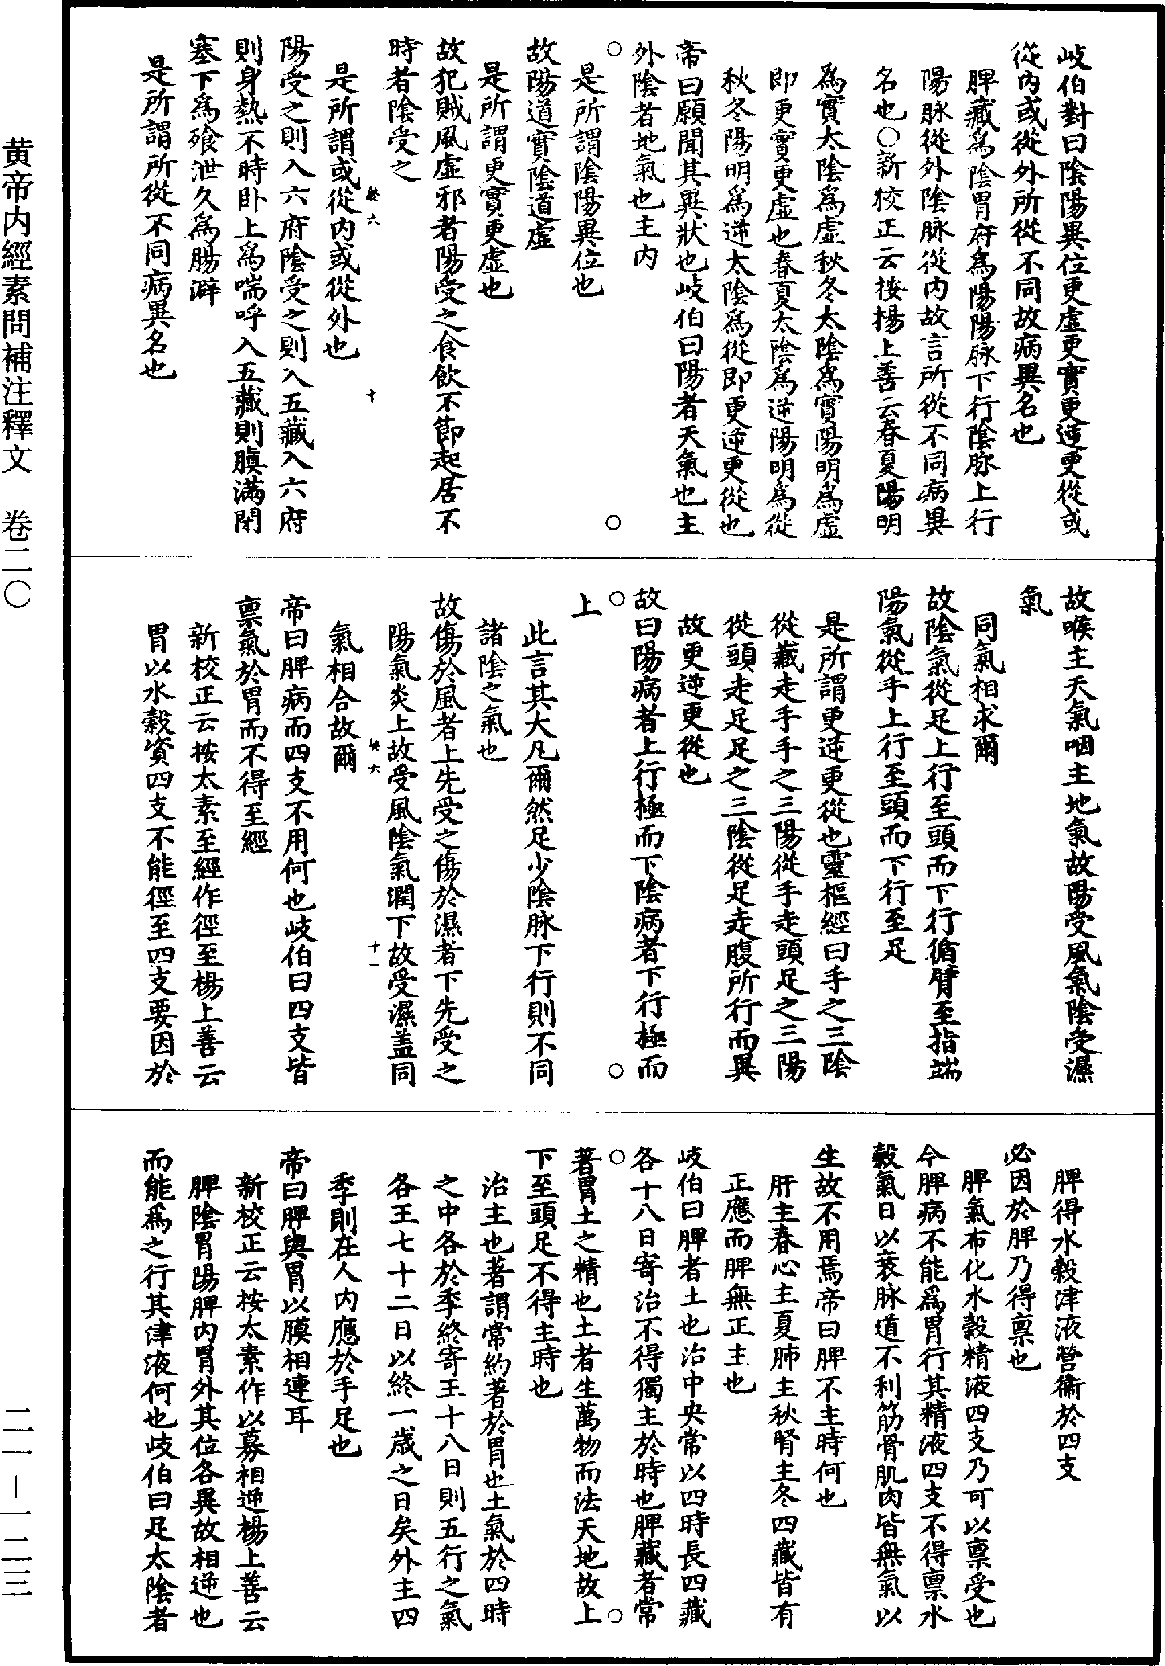 岐伯對曰陰陽異位更虛更實更逆更從或
從內或從外所從不同故病異名也
脾藏爲陰胃府爲陽陽脉下行陰脉上行
陽脉從外陰脉從內故言所從不同病異
名也○新校正云按楊上善云春夏陽明
爲實太陰爲虛秋冬太陰爲實陽明爲虛
即更實更虛也春夏太陰爲逆陽明爲從
秋冬陽明爲逆太陰爲從即更逆更從也
帝曰願聞其異狀也岐伯曰陽者天氣也主
外陰者地氣也主內
○　○
是所謂陰陽異位也
故陽道實陰道虛
是所謂更實更虛也
故犯賊風虛邪者陽受之食飲不節起居不
時者陰受之
是所謂或從內或從外也
十
陽受之則入六府陰受之則入五藏入六府
則身熱不時卧上爲喘呼入五藏則䐜滿閉
塞下爲飧泄久爲腸澼
是所謂所從不同病異名也
故喉主天氣咽主地氣故陽受風氣陰受濕
氣
同氣相求爾
故陰氣從足上行至頭而下行循臂至指端
陽氣從手上行至頭而下行至足
是所謂更逆更從也靈樞經曰手之三陰
從藏走手手之三陽從手走頭足之三陽
從頭走足足之三陰從足走腹所行而異
故更逆更從也
故曰陽病者上行極而下陰病者下行極而
○　○
上
此言其大凡爾然足少陰脉下行則不同
諸陰之氣也
故傷於風者上先受之傷於濕者下先受之
陽氣炎上故受風陰氣潤下故受濕蓋同
十一
氣相合故爾
帝曰脾病而四支不用何也岐伯曰四支皆
禀氣於胃而不得至經
新校正云按太素至經作徑至楊上善云
胃以水穀資四支不能徑至四支要因於
脾得水穀津液營衛於四支
必因於脾乃得禀也
脾氣布化水穀精液四支乃可以禀受也
今脾病不能爲胃行其精液四支不得禀水
穀氣日以衰脉道不利筋骨肌肉皆無氣以
生故不用焉帝曰脾不主時何也
肝主春心主夏肺主秋腎主冬四藏皆有
正應而脾無正主也
岐伯曰脾者土也治中央常以四時長四藏
各十八日寄治不得獨主於時也脾藏者常
○　○
著胃土之精也土者生萬物而法天地故上
下至頭足不得主時也
治主也著謂常約著於胃也土氣於四時
之中各於季終寄王十八日則五行之氣
各王七十二日以終一歲之日矣外主四
季則在人內應於手足也
帝曰脾與胃以膜相連耳
新校正云按太素作以募相逆楊上善云
脾陰胃陽脾內胃外其位各異故相逆也
而能爲之行其津液何也岐伯曰足太陰者
黄帝内經素問補注釋文　卷二〇
二一－一二三